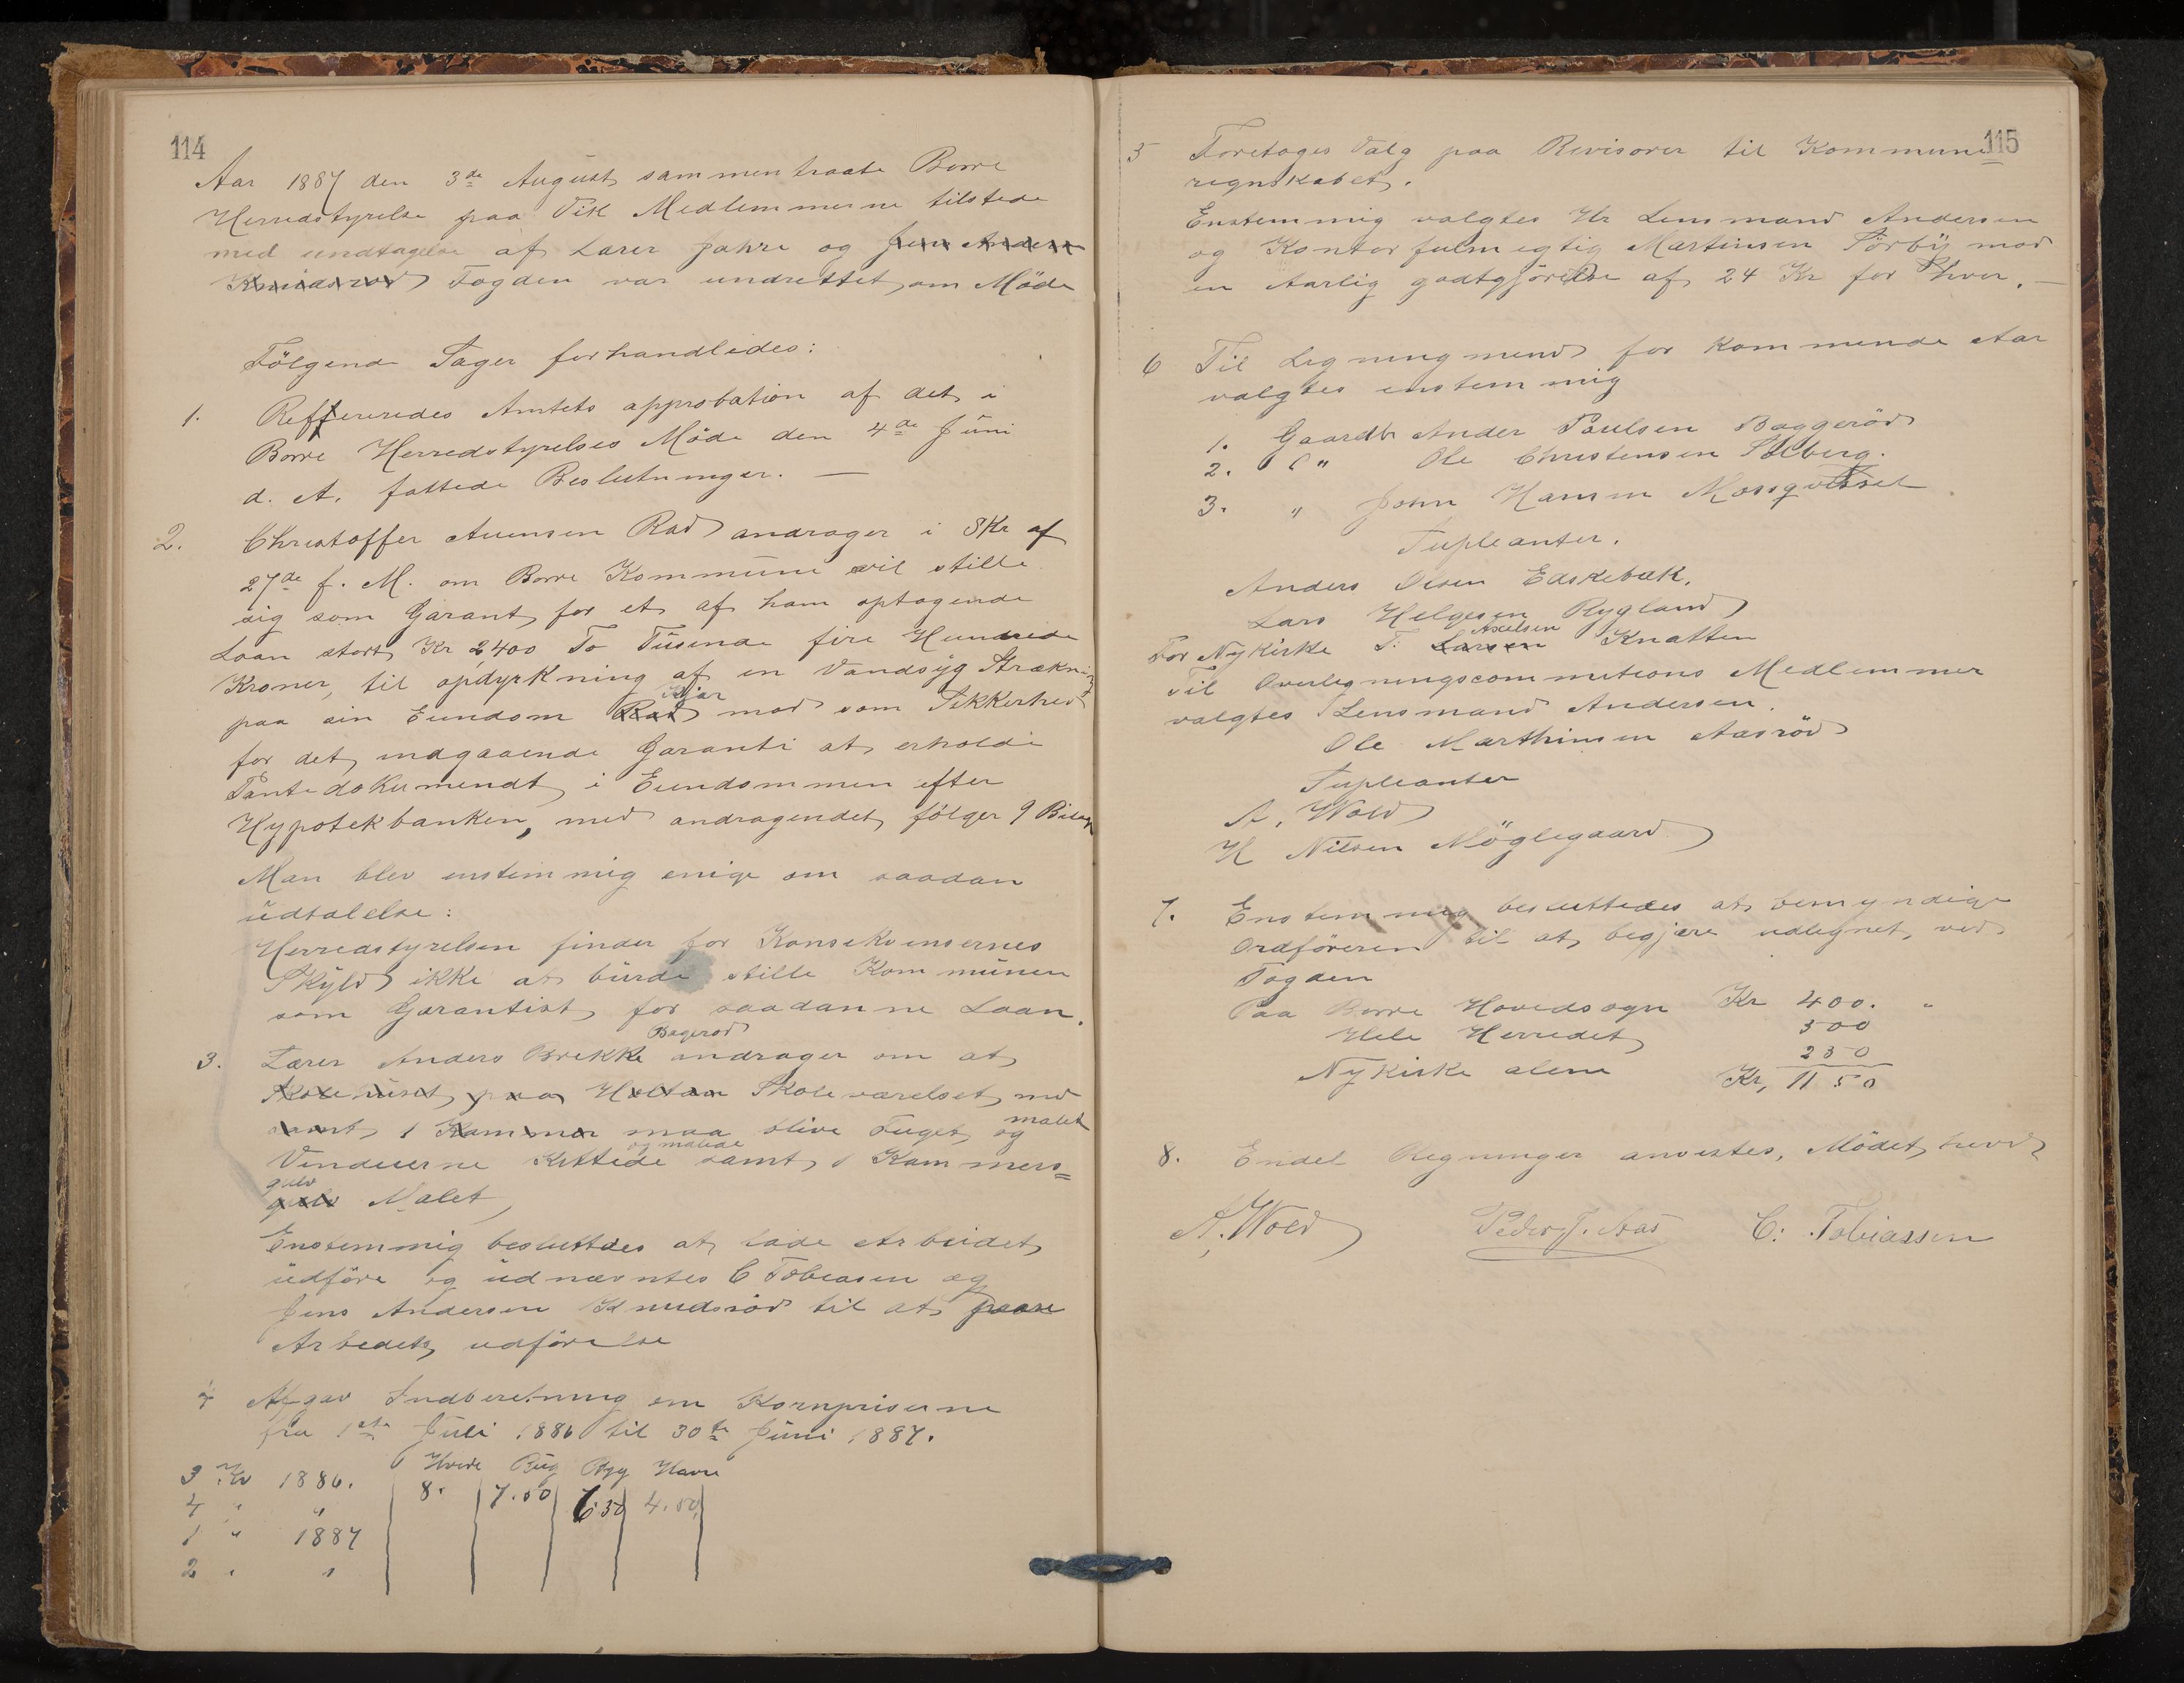 114
Aar 1887 den 3de August sammentraate Borre
Herredstyrelse paa Vik Medlemmerne tilstede
med undtagelse af Lærer Jahre og Jens Andersen
Knudsrød Fogden var undrettet om Möde
Fölgende Sager forhandledes:
1. Reffereredes Amtets approbation af det i
Borre Herredstyrelses Möde den 4de Juni
d. A. fattede Beslutninger. —
2. Christoffer Auensen Rad andrager i SKr af
27de f. M. om Borre Kommune vil stille
sig som Garant for et af ham optagende
Laan stort Kr 2,400 To Tusende fire Hundrede
Kroner, til opdyrkning af en Vandsyg Strækni
paa sin Eiendom Rad mod som Sikkerhed
for det indgaaende Garanti at erholde
Pantedokumendt i Eiendommen efter
Hypotekbanken, med andragendet fölger 9 Bilag
Man blev enstemmig enige om saadan
udtalelse:
Herredstyrelsen finder for Konsekvensernes
Skyld ikke at burde stille Kommunen
som Garantist for saadanne Laan.
Bagerød
3. Lærer Anders Brekke andrager om at
Skolehuset paa Holtan Skoleværelset med
samt 1 Kammer maa blive Fuget og malet
og malede
Vinduerne Kittede samt 1 Kammers=
gulv
gulv Malet
Enstemmig besluttdes at lade Arbeidet
udföre og udnævntes C Tobiasen og
Jens Andersen Knudsröd til at paase
Arbedets udförelse
4 Afgav Indberetning om Kornpriserne
fra 1ste Juli 1886 til 30te Juni 1887.
Hvede Rug Byg Havre
3 Kv 1886. 8. 7.50 6.30 4.50
4 " "
1 " 1887
2 " "
115
5 Foretoges Valg paa Revisorer til Kommune
regnskabet.
Enstemmig valgtes Hr Lensmand Andersen
og Kontorfulmegtig Martinsen Sörby mod
en Aarlig godtgjörelse af 24 Kr for hver. —
6 Til Ligningmend for kommende Aar
valgtes enstemmig
1. Gaardb Ander Paulsen Baggeröd
2. " Ole Christensen Solberg.
3. " John Hansen
Supleanter.
Anders Olsen Easkebæk.
Lars Helgesen Rygland
Axelsen
For Nykirke T. Larsen Knatten
Til Overligningscommitions Medlemmer
valgtes Lensmand Andersen.
Ole Marthinsen Aasröd
Supleanter
A. Wold
H Nilsen Möglegaard
7. Enstemmig besluttedes at bemyndige
Ordföreren til at begjære udlignet ved
Fogden
Paa Borre Hovedsogn Kr 400. "
Hele Herredet 500
Nykirke alene 250
Kr, 1150
8. Endel Regninger anvistes, Mödet hevd
A. Wold Peder J. Aas C: Tobiassen